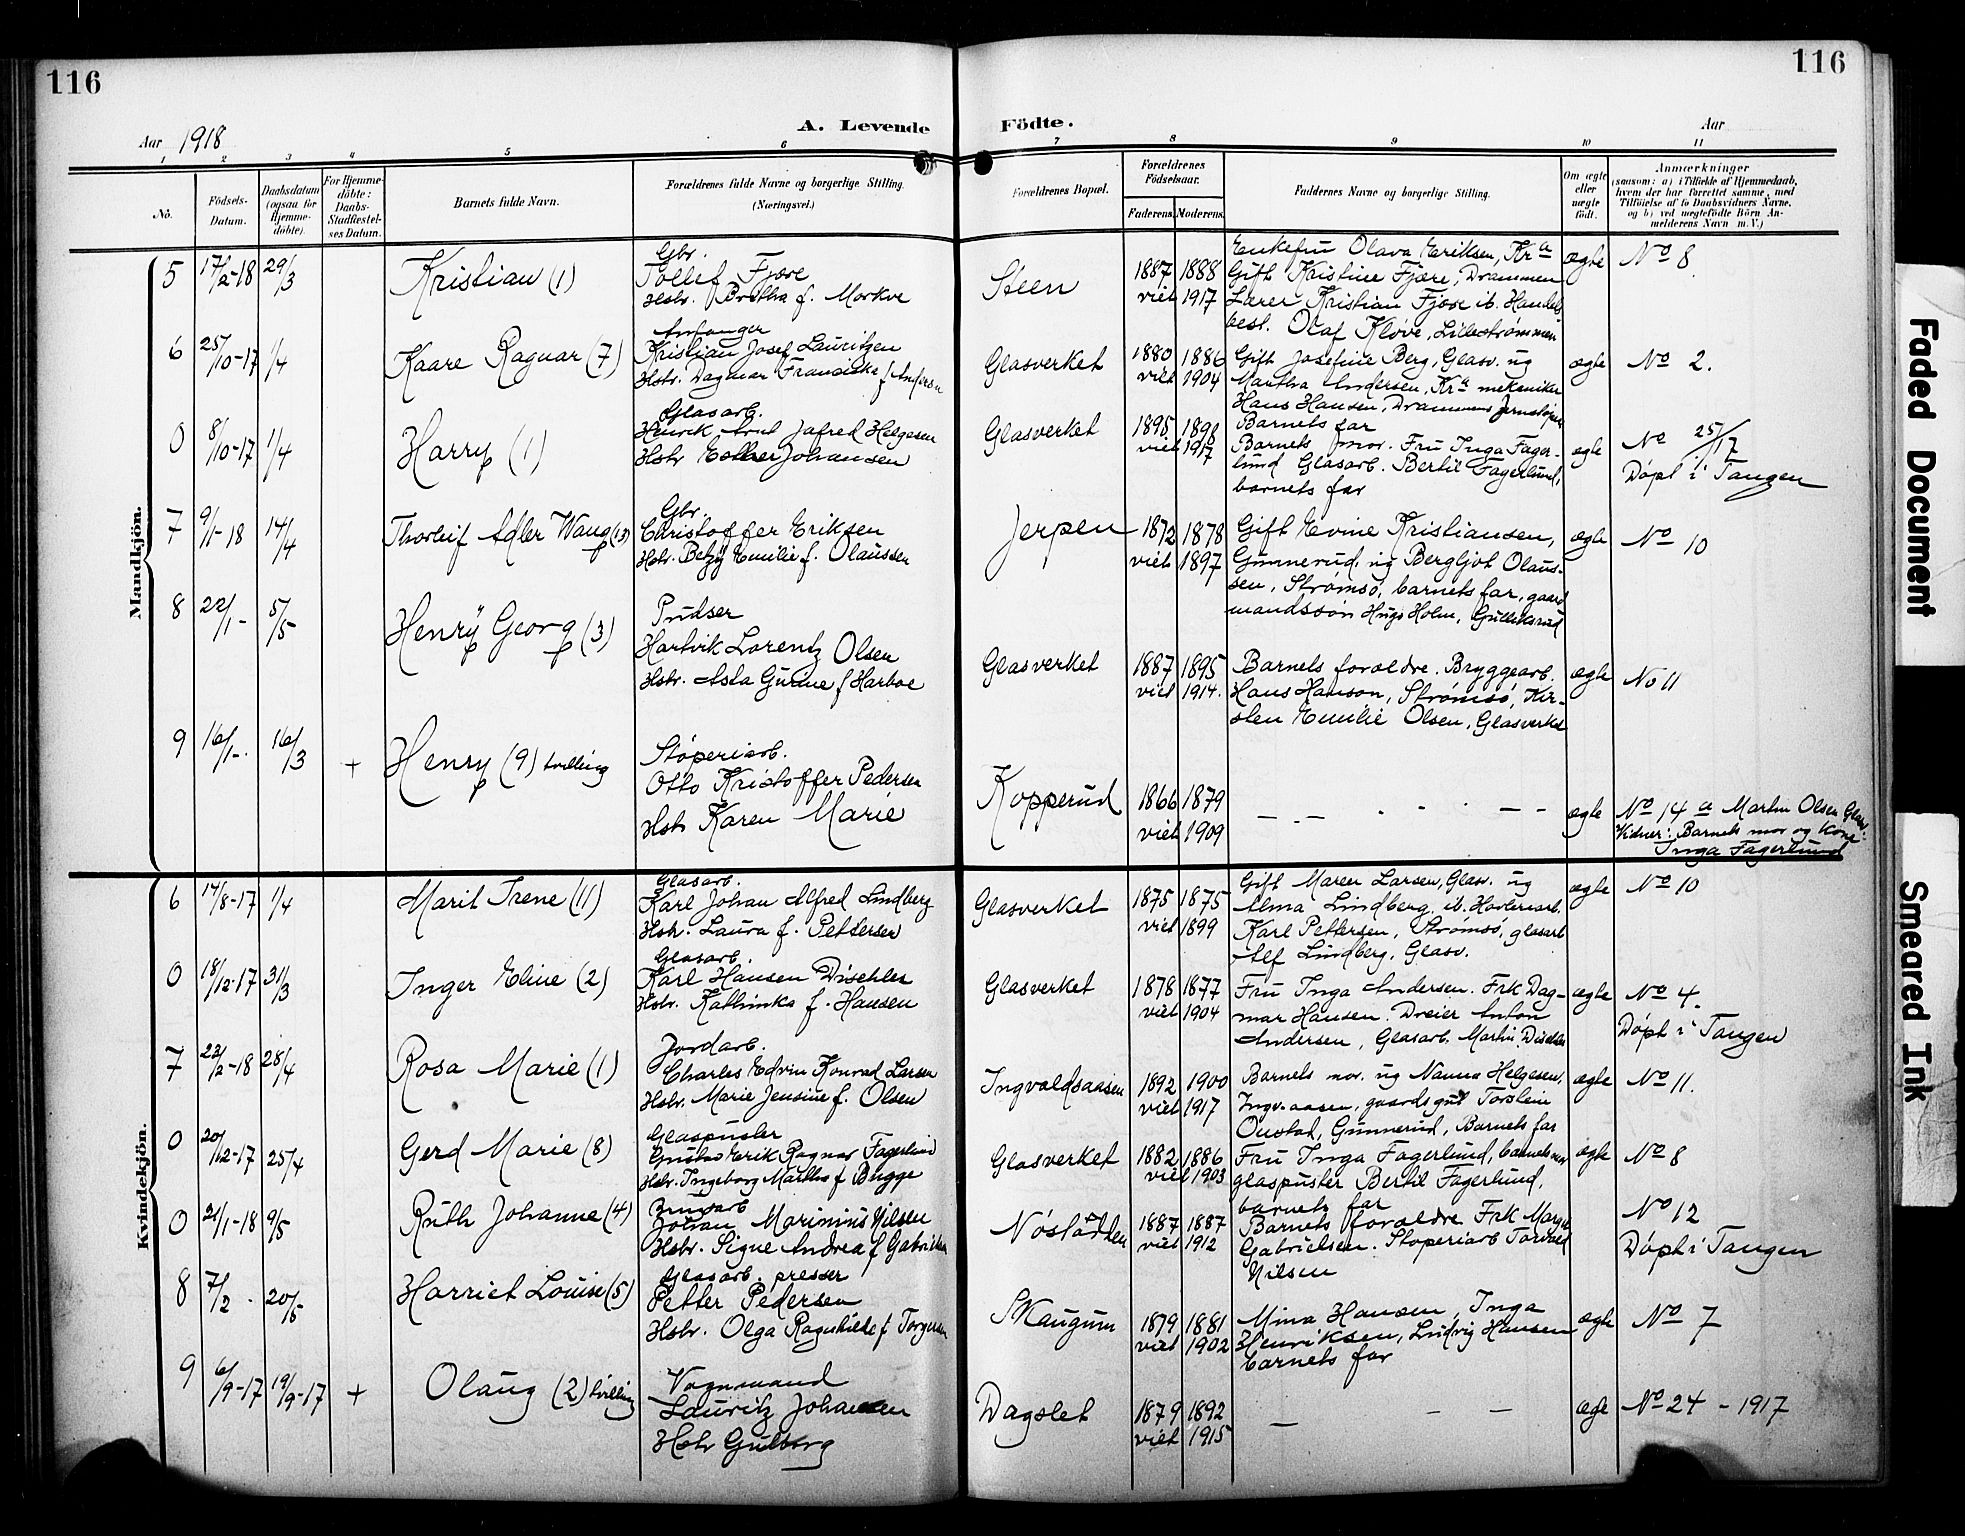 116
116
Aar 1918
A. Levende Födte.
Aar
1 2 3 4 5 6 7 8 9 10 11
No.
Födsels-Datum.
Daabsdatum (ogsaa for Hjemme-döbte).
For Hjemme-döbte: Daabs-Stadfæstel-ses Datum.
Barnets fulde Navn.
Forældrenes fulde Navne og borgerlige Stilling. (Næringsvei.)
Forældrenes Bopæl.
Forældrenes Födselsaar.
Faderens. Moderens.
Faddernes Navne og borgerlige Stilling.
Om ægte eller uægte födt.
Anmærkninger
(saasom: a) i Tilfælde af Hjemmedaab, hvem der har forrettet samme, med Tilföielse af to Daabsvidners Navne, og b) ved uægtefödte Börn An-melderens Navn m. V.)
Mandkjön.
5 17/2-18 29/3 Kristian (1)
Gbr.
Tollef Fjøse
Hstr. Britha f. Morkve
Steen
1887 1888
viet 1917
Enkefru Olava Eriksen, Kr.a
Gift Kristine Fjære, Drammen
Lærer Kristian Fjøse ib. Handels
best. Olaf Kløve, Lillestrømmen
ægte No 8
6 25/10-17 1/4 Kaare Ragnar (7)
Anfanger
Kristian Josef Lauritzen
Hstr. Dagmar Franciska f Andersen
Glasverket
1880 1886
viet 1904
Gift Josefine Berg, Glasv. ug
Martha Andersen, Kr.a mekaniker
Hans Hansen, Drammens Jernstøperi
ægte No 2.
0 8/10-17 1/4 Harry (1)
Glasarb.
Henrik Arnt Jafred Helgesen
Hstr Esther Johansen
Glasverket
1895 1898
viet 1917
Barnets far
Barnets mor. Fru Inga Fager-
lund Glasarb. Bertil Fagerlund,
barnets far
ægte No 25/17
Døpt i Tangen
7 9/1-18 14/4 Thorleif Adler Waug (13)
Gbr.
Christoffer Eriksen
Hstr. Betzy Emilie f. Olaussen
Jerpen
1872 1878
viet 1897
Gift Evine Kristiansen,
Gunnerud, ug Bergljot Olaus-
sen, Strømsø, barnets far, gaard
mandssøn Hugo Holm, Gulliksrud
ægte No 10
8 22/1- 5/5 Henry Georg (3)
Pudser
Hartvik Lorentz Olsen
Hstr. Asta Gurine f Harboe
Glasverket
1887 1895
viet 1914.
Barnets forældre. Bryggearb.
Hans Hanson, Strømsø, Kir-
sten Emilie Olsen, Glasverket
ægte No 11
9 16/1-. 16/3 + Henry (9) tvilling
Støperiarb.
Otto Kristoffer Pedersen
Hstr Karen Marie
Kopperud
1866 1879
viet 1909
– . – - . – –
ægte No 14 a Martin Olsen Glasv.
Vidner: Barnets mor og Kone
Inga Fagerlund
Kvindekjön.
6 14/8-17 1/4 Marit Irene (11)
Glasarb.
Karl Johan Alfred Lindberg
Hstr. Laura f. Pettersen
Glasverket
1875 1875
viet 1899
Gift Maren Larsen, Glasv. ug
Alma Lindberg ib. Havneriarb.
Karl Pettersen, Strømsø, glasarb
Alf Lindberg, Glasv.
ægte No 10
0 18/12-17 31/3 Inger Eline (2)
Glasarb.
Karl Hansen Dischler
Hstr. Kathinka f. Hansen
Glasverket
1878 1877
viet 1904
Fru Inga Andersen. Frk Dag-
mar Hansen. Dreier Anton
Andersen, Glasarb. Martin Dischler
ægte No 4.
Døpt i Tangen
7 23/2-18 28/4 Rosa Marie (1)
Jordarb.
Charles Edvin Konrad Larsen
Hstr. Marie Jensine f. Olsen
Ingvaldsaasen
1892 1900
viet 1917
Barnets mor. ug Nanna Helgesen,
Ingv.aasen, gaardsgut Torstein
Oustad, Gunnerud, Barnets far
ægte No 11.
0 20/12-17 25/4 Gerd Marie (8)
Glaspuster
Gustav Erik Ragnar Fagerlund
Hstr. Ingeborg Martha f Bugge
Glasverket
1882 1886
viet 1903
Fru Inga Fagerlund, barnets mor
glaspuster Bertil Fagerlund,
barnets far
ægte No 8
0 21/1-18 9/5 Ruth Johanne (4)
Johan Marinius Nilsen
Hstr. Signe Andrea f Gabrielsen
Nøstødden
1887 1887
viet 1912
Barnets forældre Frk Margit
Gabrielsen. Støperiarb Torvald
Nilsen
No 12
Døpt i Tangen
8 7/2 . 20/5 Harriet Louise (5)
Glasarb. presser
Petter Pedersen
Hstr. Olga Ragnhilde f Torgersen
Skaugum
1879 1881
viet 1902
Mina Hansen, Inga
Henriksen, Ludvig Hansen
barnets far
ægte No 7
9 6/9-17 19/9-17 + Olaug (2) tvilling
Vognmand
Lauritz Johansen
Hstr Gulborg
Dagslet
1879 1892
viet 1915
– – –
ægte No 24 - 1917
Faded Document
Smeared Ink